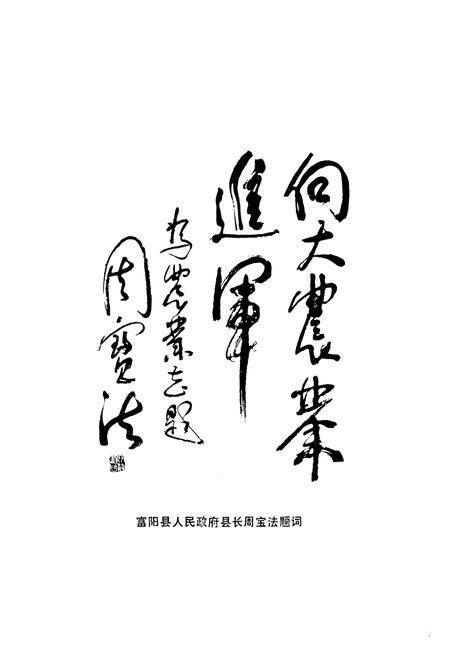 向大農業
進軍
为農業志題
周寶法
富阳县人民政府县长周宝法题词